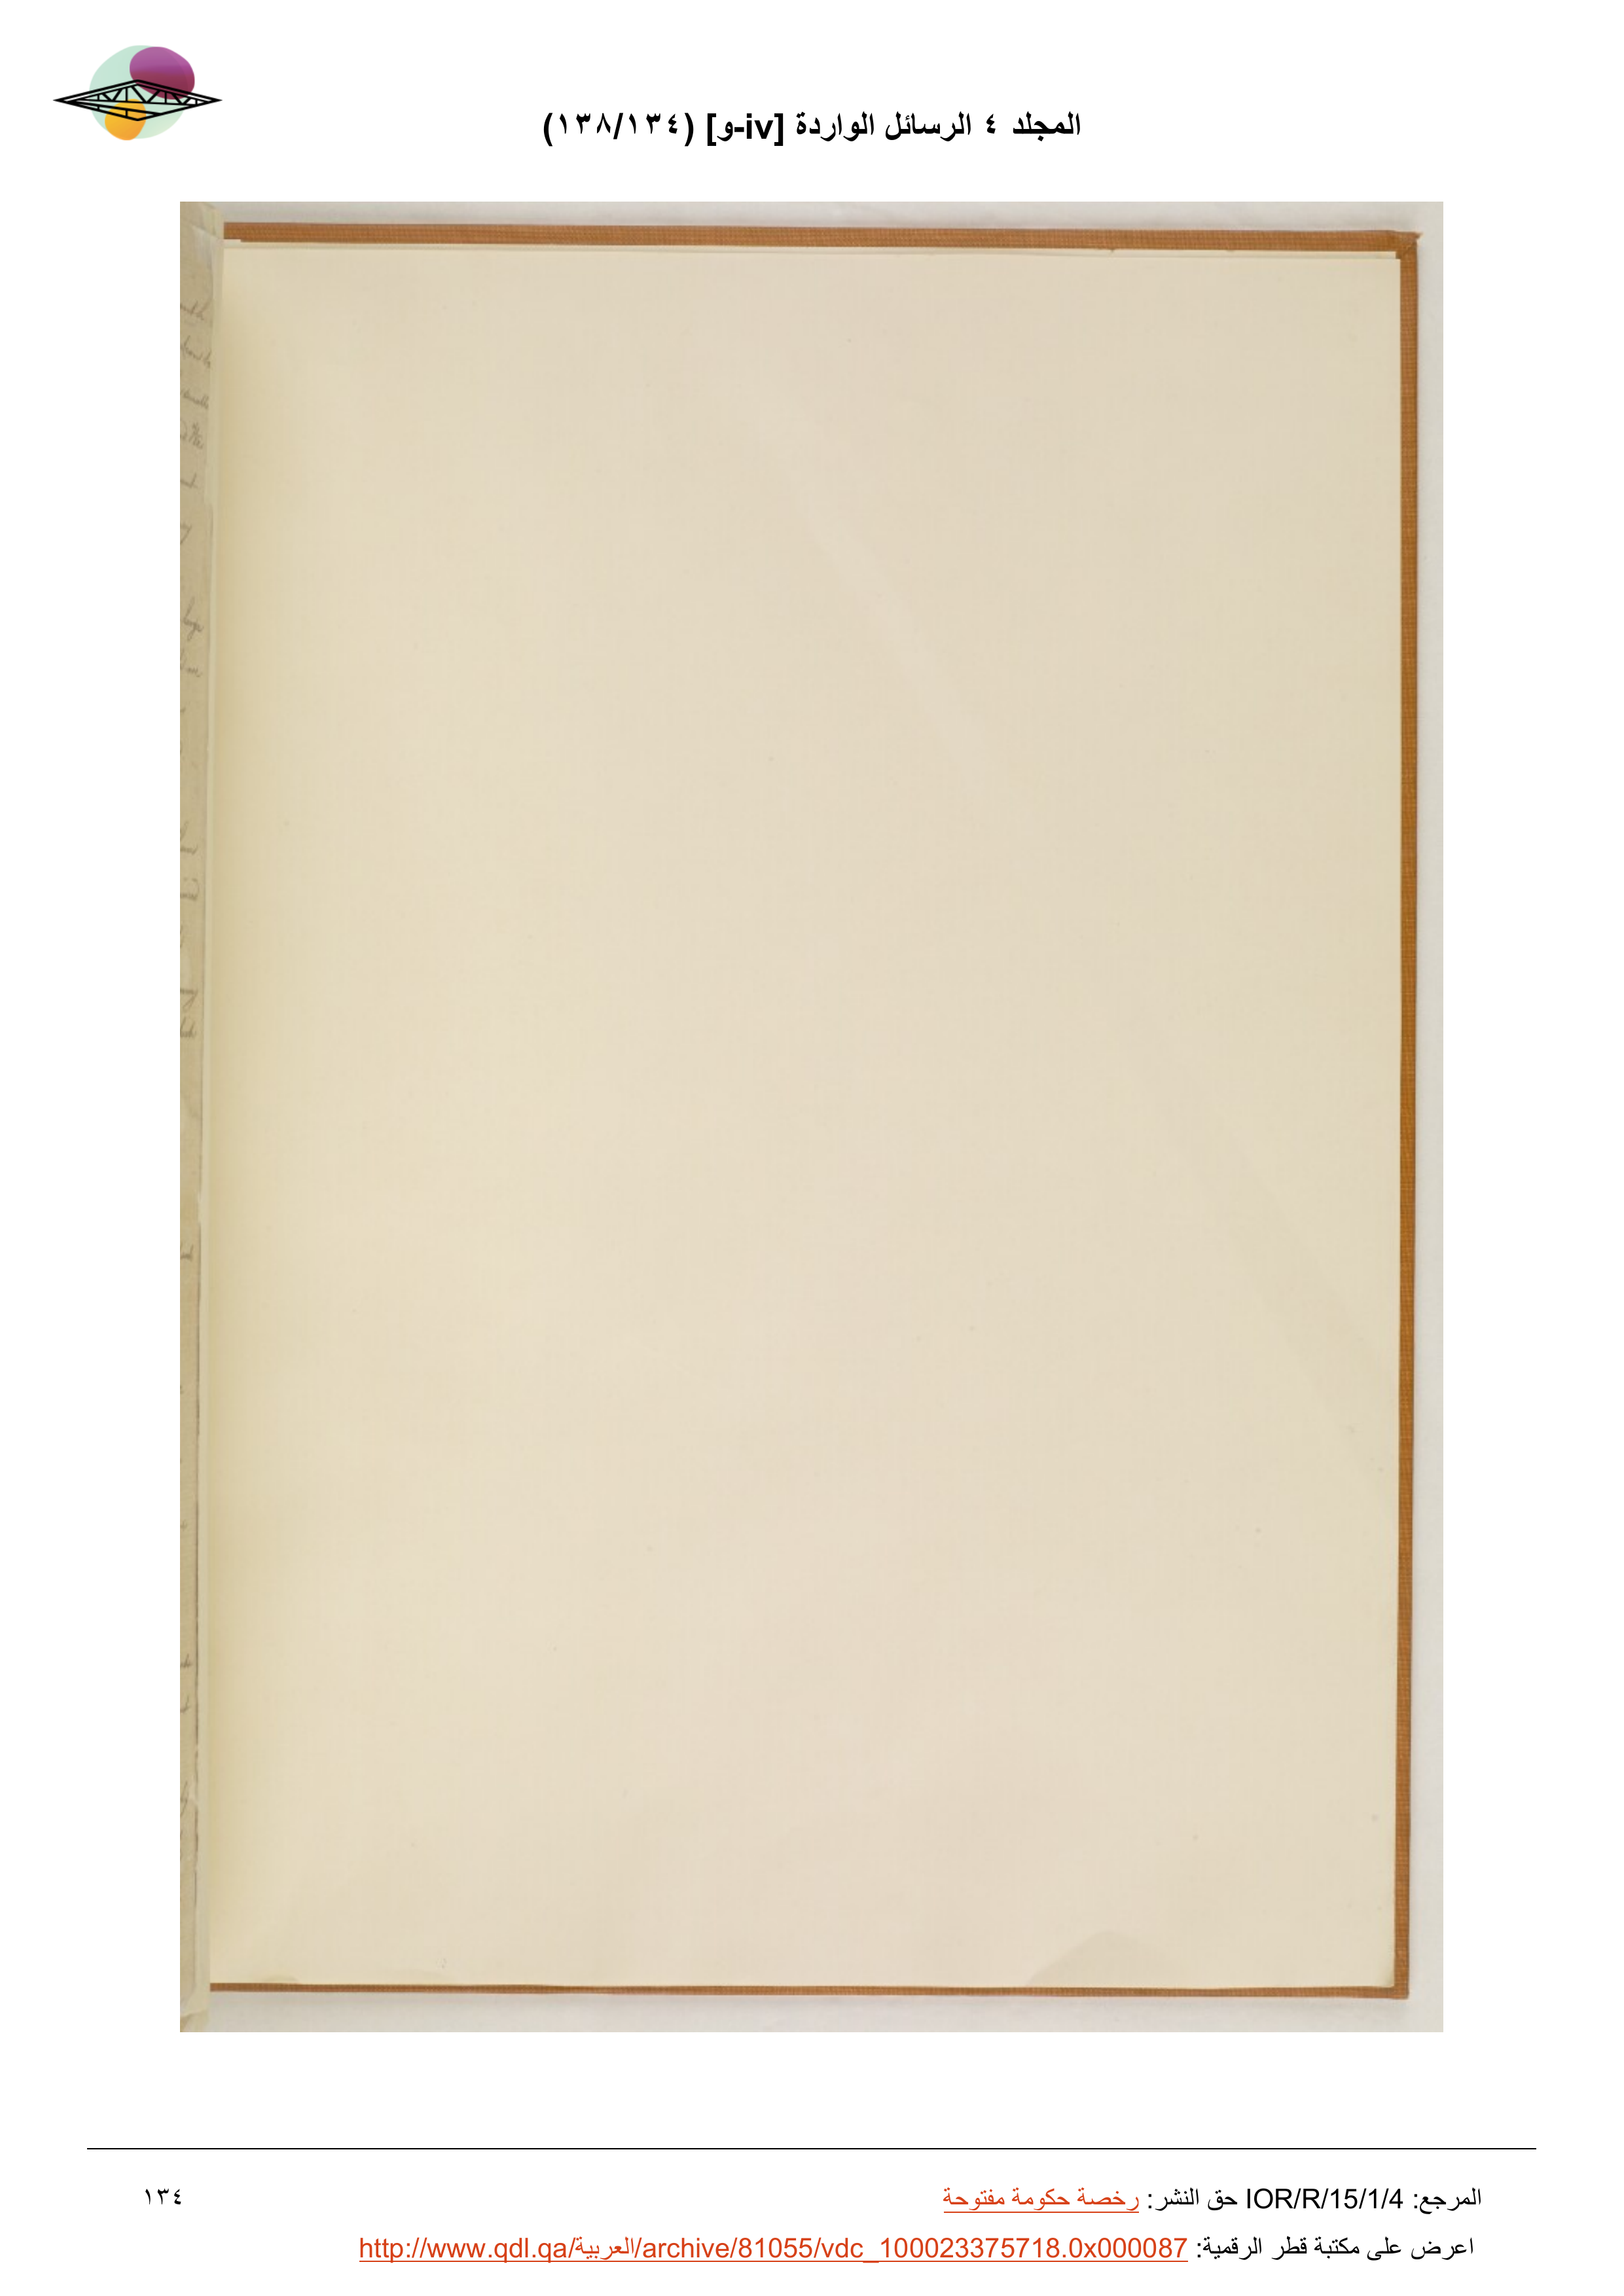 المجلد ٤ الرسائل الواردة [iv-و] (١٣٨/١٣٤)
المرجع: IOR/R/15/1/4 حق النشر: رخصة حكومة مفتوحة
١٣٤
اعرض على مكتبة قطر الرقمية: http://www.qdl.qa/العربية/archive/81055/vdc_100023375718.0x000087